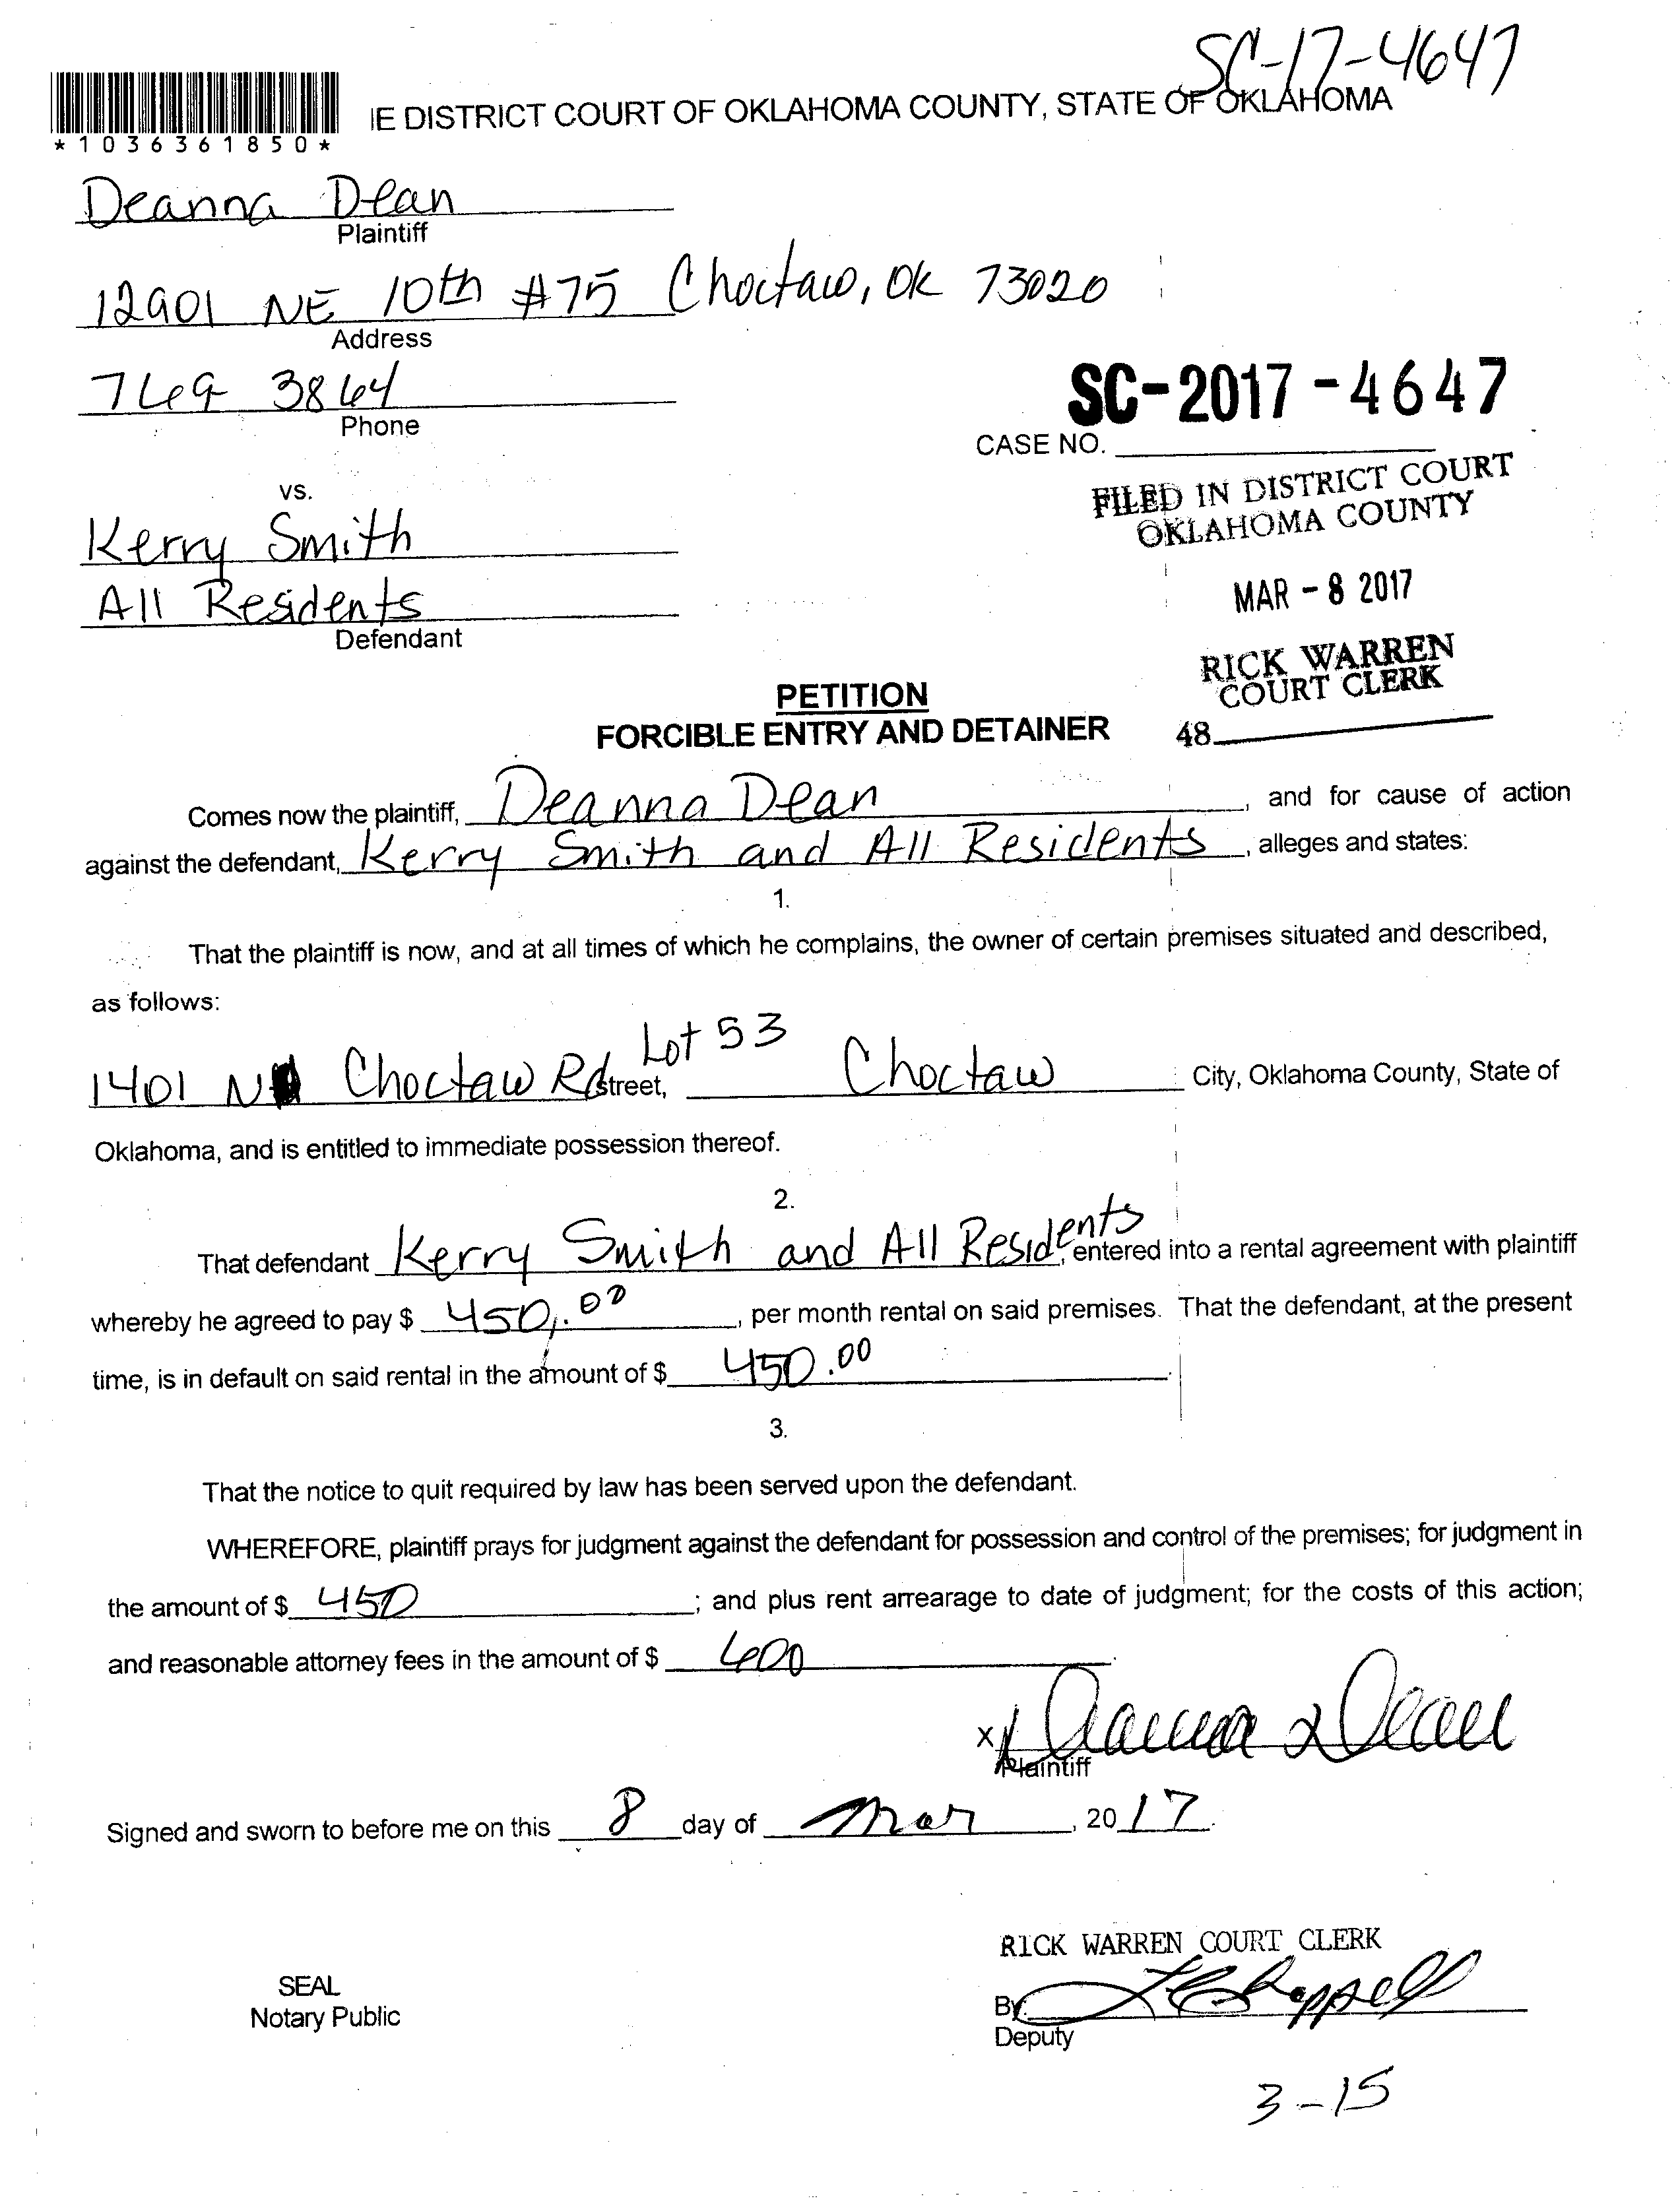 SC-17-4647
IE DISTRICT COURT OF OKLAHOMA COUNTY, STATE OF OKLAHOMA
*1036361850*
Deanna Dean
Plaintiff
12901 NE 10th #75 Choctaw, OK 73020
Address
769 3864
Phone
SC-2017-4647
CASE NO.
vs.
FILED IN DISTRICT COURT
OKLAHOMA COUNTY
Kerry Smith
All Residents
Defendant
MAR - 8 2017
RICK WARREN
COURT CLERK
48
PETITION
FORCIBLE ENTRY AND DETAINER
Comes now the plaintiff, Deanna Dean, and for cause of action
against the defendant, Kerry Smith and All Residents, alleges and states:
1.
That the plaintiff is now, and at all times of which he complains, the owner of certain premises situated and described,
as follows:
1401 N Choctaw Rd Lot 53 Street, Choctaw City, Oklahoma County, State of
Oklahoma, and is entitled to immediate possession thereof.
2.
That defendant Kerry Smith and All Residents, entered into a rental agreement with plaintiff
whereby he agreed to pay $ 450.00, per month rental on said premises. That the defendant, at the present
time, is in default on said rental in the amount of $ 450.00.
3.
That the notice to quit required by law has been served upon the defendant.
WHEREFORE, plaintiff prays for judgment against the defendant for possession and control of the premises; for judgment in
the amount of $ 450; and plus rent arrearage to date of judgment; for the costs of this action;
and reasonable attorney fees in the amount of $ 600.
x Deanna Dean
Plaintiff
Signed and sworn to before me on this 8 day of Mar, 2017.
RICK WARREN COURT CLERK
SEAL
Notary Public
By
Deputy
3-15